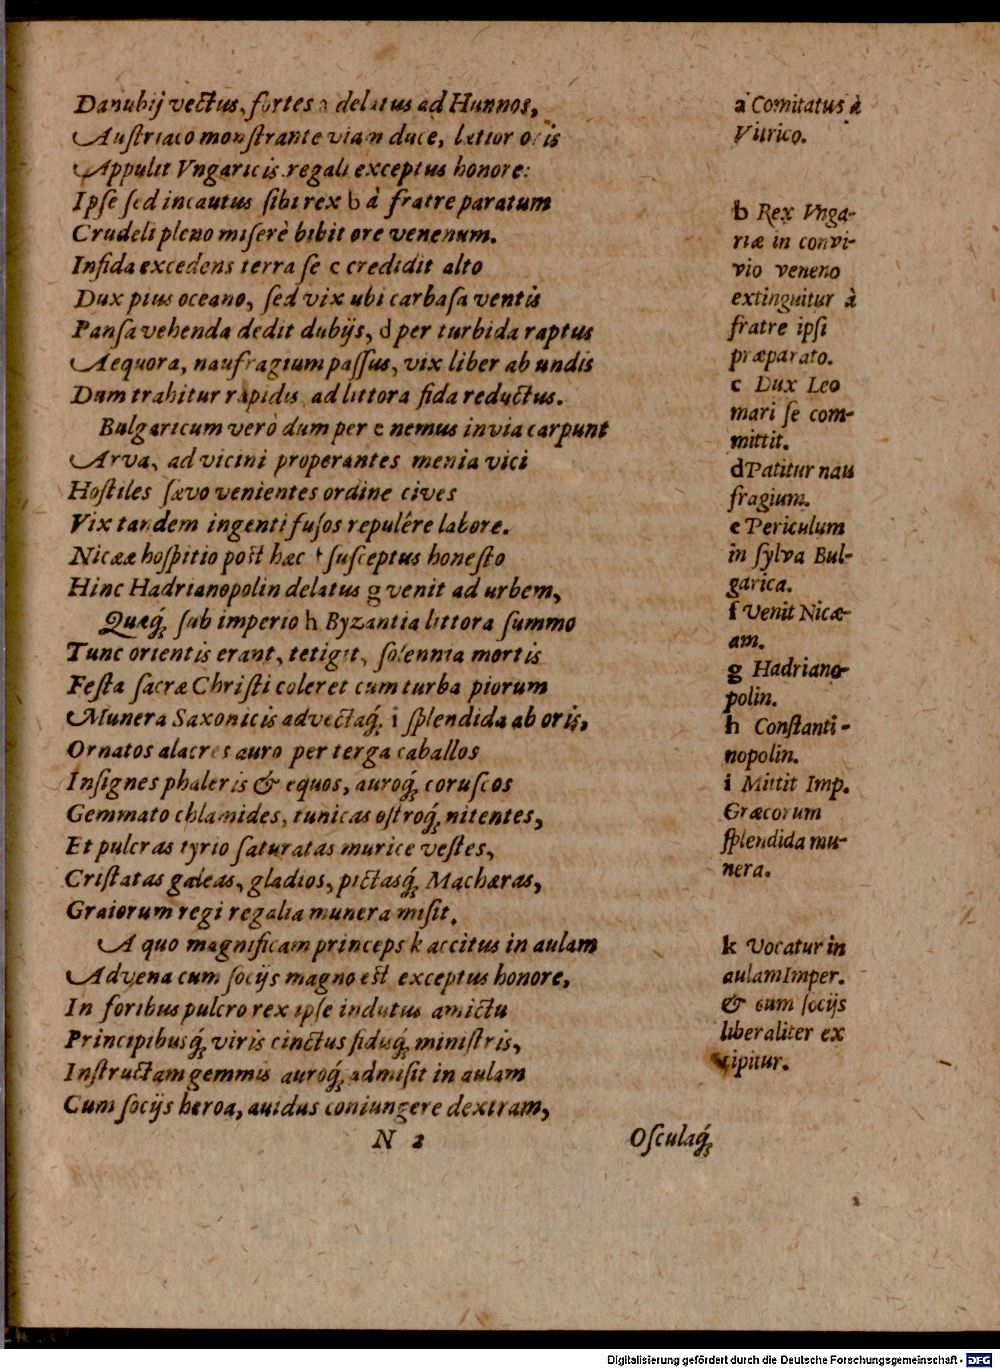 Danubij vectus, fortes a delatus ad Hunnos,
Auſtriaco monſtrante viam duce, lætior oris
Appulit Vngaricis regali exceptus honore:
Ipſe ſed incautus ſibi rex b à fratre paratum
Crudeli pleno miſerè bibit ore venenum.
Infida excedens terra ſe c credidit alto
Dux pius oceano, ſed vix ubi carbaſa ventis
Panſa vehenda dedit dubijs, d per turbida raptus
Aequora, naufragium paſſus, vix liber ab undis
Dum trahitur rapidis ad littora fida reductus.
Bulgaricum verò dum per e nemus invia carpunt
Arva, ad vicini properantes menia vici
Hoſtiles ſævo venientes ordine cives
Vix tandem ingenti fuſos repulêre labore.
Nicææ hoſpitio poſt hæc f ſuſceptus honeſto
Hinc Hadrianopolin delatus g venit ad urbem,
Quaq́; ſub imperio h Byzantia littora ſummo
Tunc orientis erant, tetigit, ſolennia mortis
Feſta ſacræ Chriſti coleret cum turba piorum
Munera Saxonicis advectaq́; i ſplendida ab oris,
Ornatos alacres auro per terga caballos
Inſignes phaleris & equos, auroq́; coruſcos
Gemmato chlamides, tunicas oſtroq́; nitentes,
Et pulcras tyrio ſaturatas murice veſtes,
Criſtatas galeas, gladios, pictasq́; Machæras,
Graiorum regi regalia munera miſit.
A quo magnificam princeps k accitus in aulam
Advena cum ſocijs magno eſt exceptus honore,
In foribus pulcro rex ipſe indutus amictu
Principibusq́; viris cinctus fiduq́; miniſtris,
Inſtructam gemmis auroq́; admiſit in aulam
Cum ſocijs heroa, auidus coniungere dextram,
N 2
Oſculaq́;
a Comitatus à
Vitrico.
b Rex Vnga-
riæ in convi-
vio veneno
extinguitur à
fratre ipſi
præparato.
c Dux Leo
mari ſe com-
mittit.
d Patitur nau
fragium.
e Periculum
in ſylva Bul-
garica.
f Venit Nicæ-
am.
g Hadriano-
polin.
h Conſtanti-
nopolin.
i Mittit Imp.
Græcorum
ſplendida mu-
nera.
k Vocatur in
aulam Imper.
& cum ſocijs
liberaliter ex
cipitur.
Digitalisierung gefördert durch die Deutsche Forschungsgemeinschaft - DFG